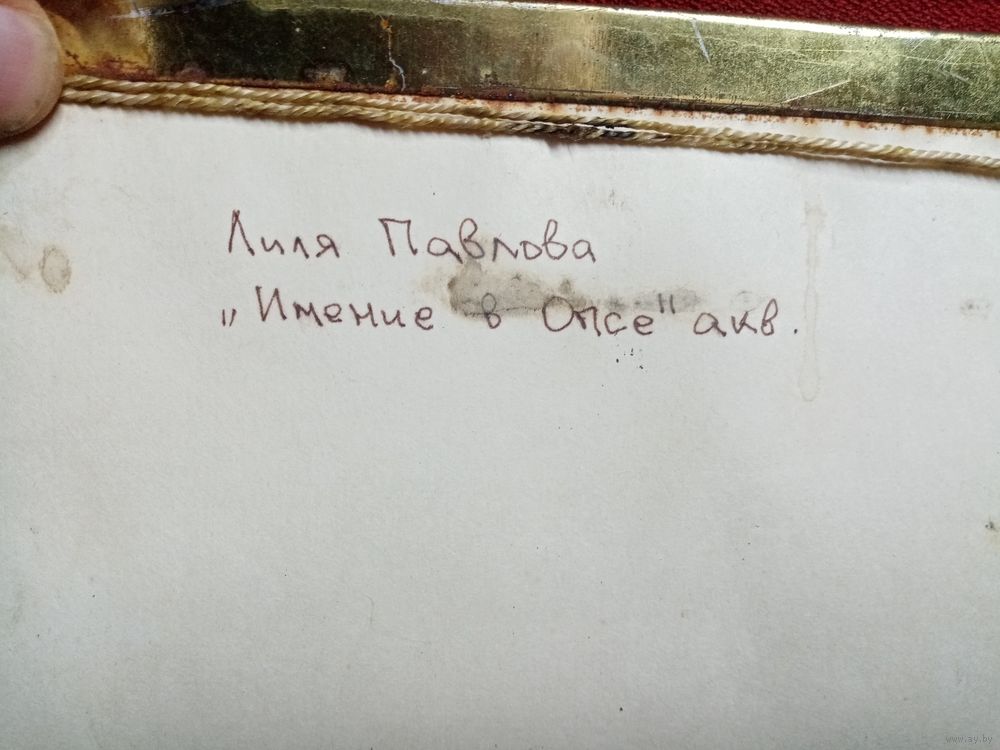 Лиля Павлова
„Имение в Опсе" акв.
www.ay.by